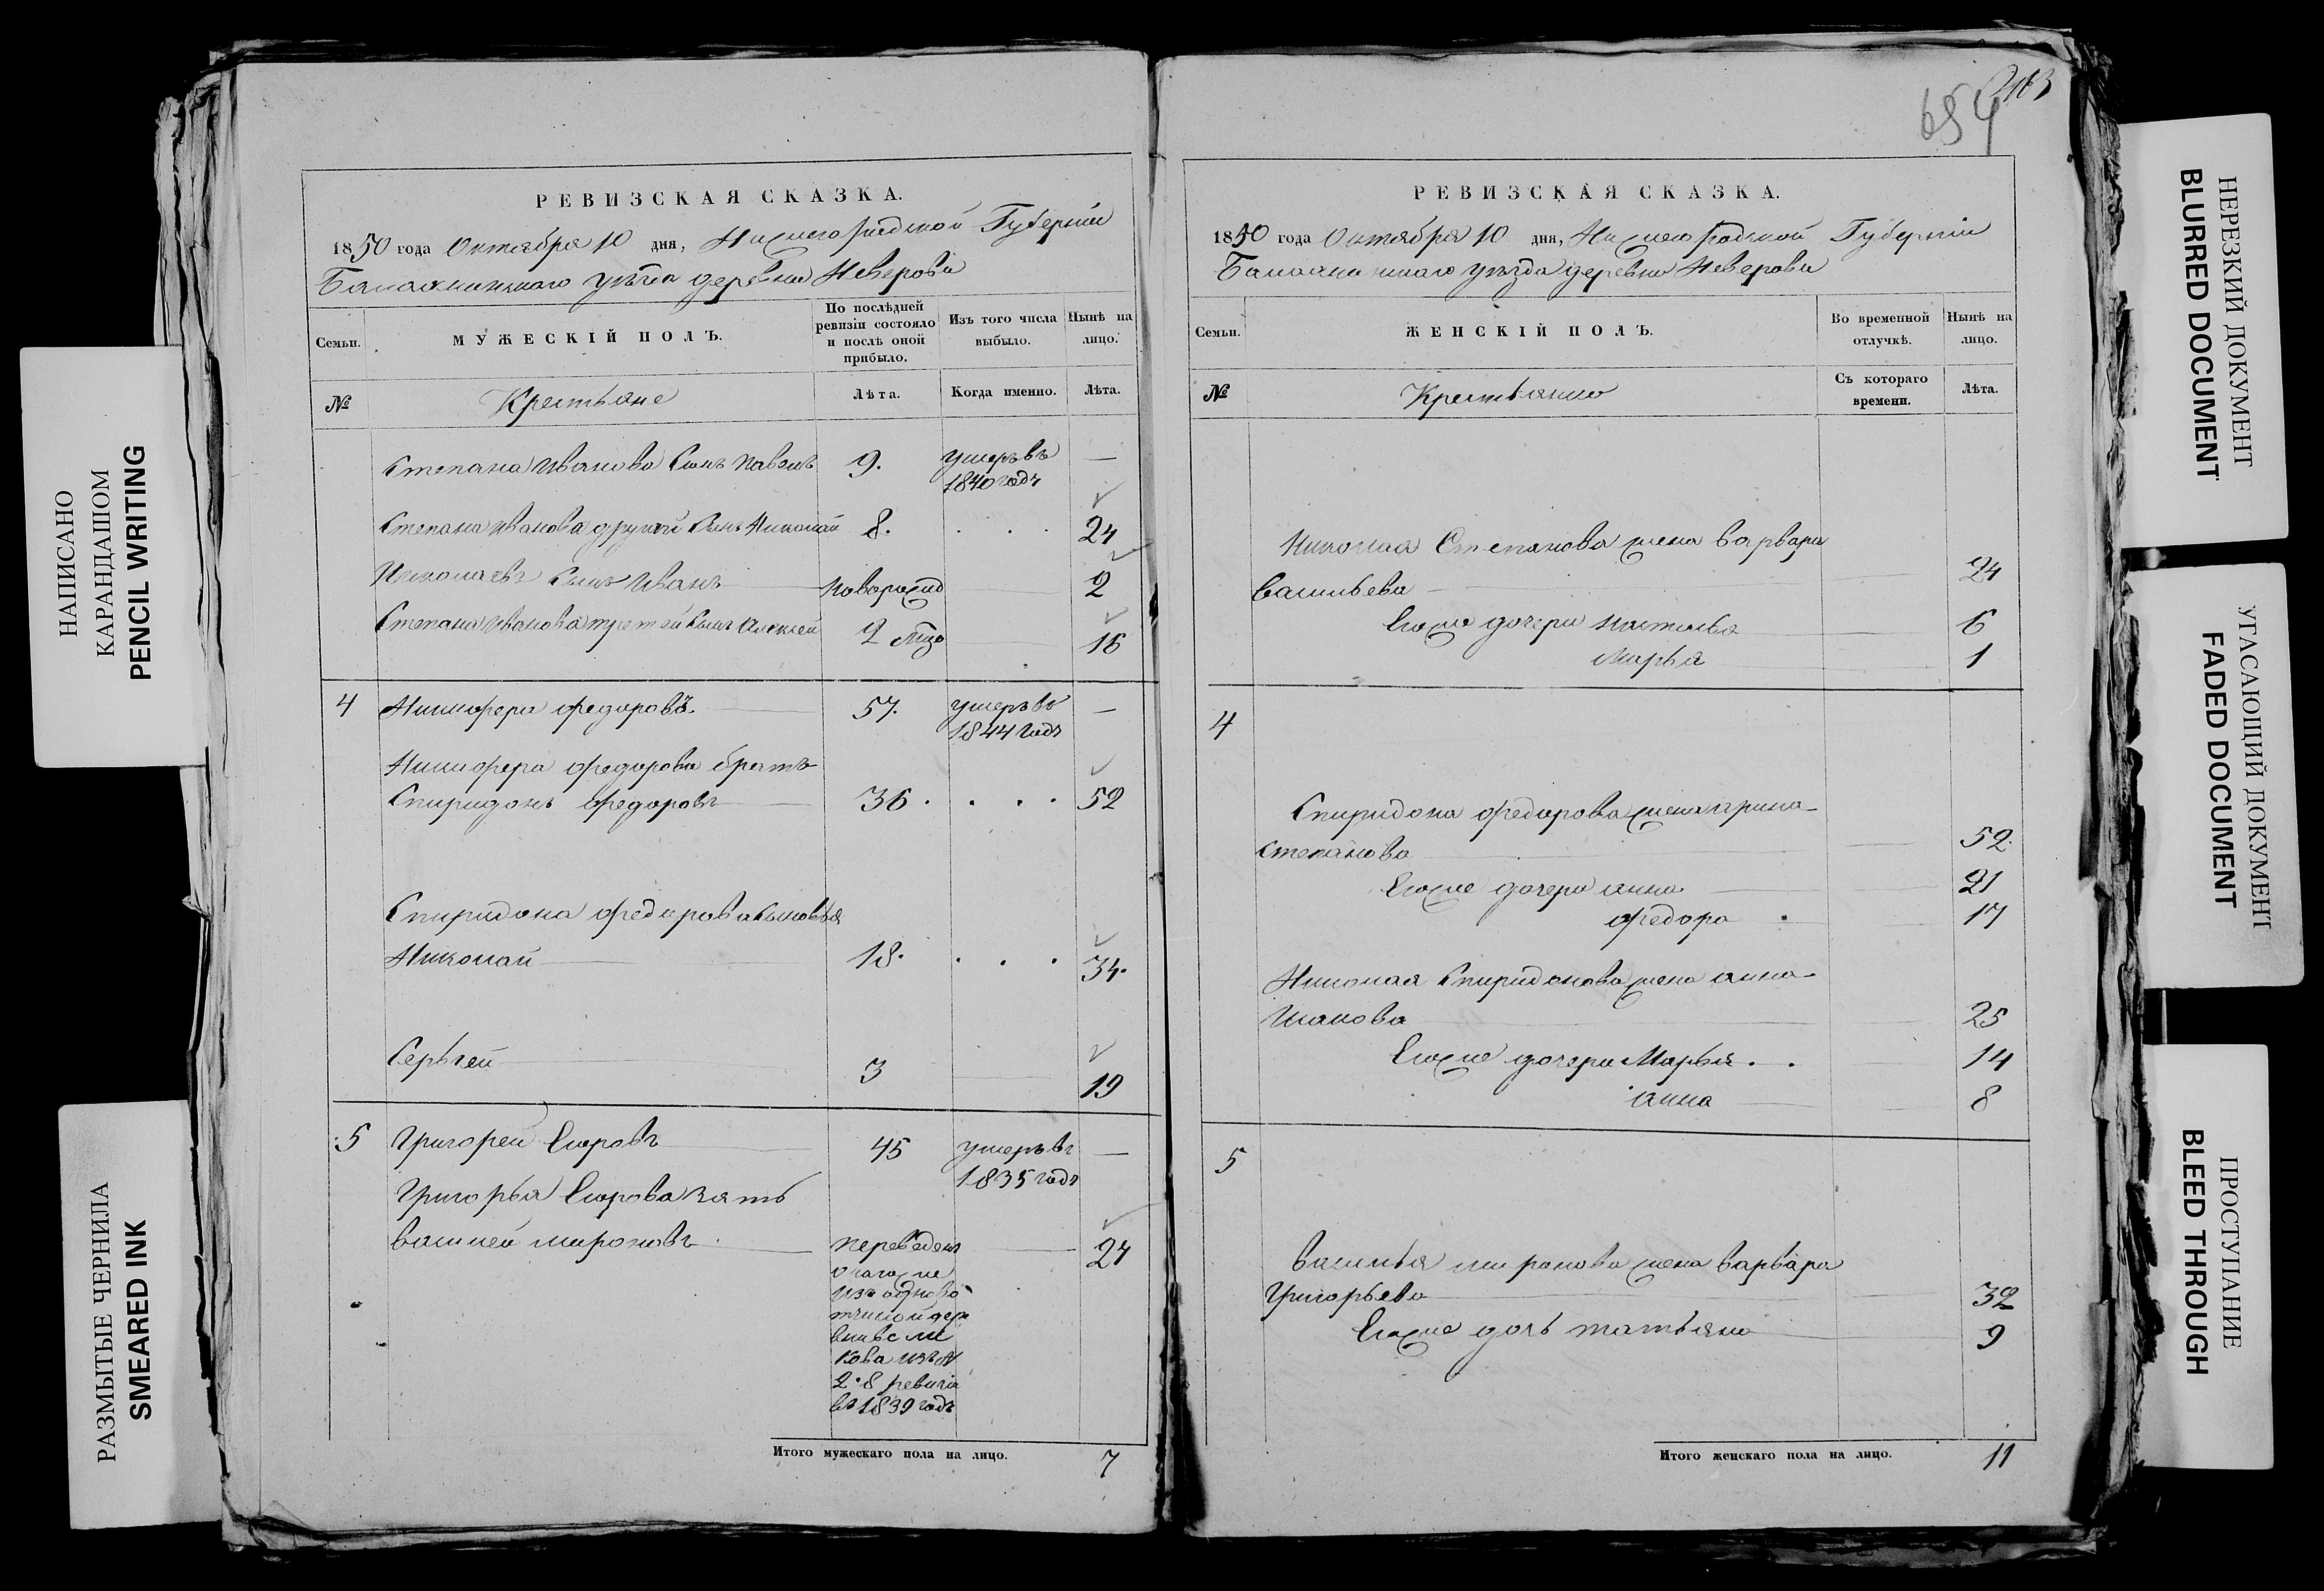 НАПИСАНО
КАРАНДАШОМ
PENCIL WRITING
РАЗМЫТЫЕ ЧЕРНИЛА
SMEARED INK
РЕВИЗСКАЯ СКАЗКА.
1850 года Октября 10 дня, Нижегородской Губерніи
Балахнинскаго уѣзда деревни Неверова
Семьи.
МУЖЕСКІЙ ПОЛЪ.
По послѣдней ревизіи состояло и послѣ оной прибыло.
Изъ того числа выбыло.
Нынѣ на лицо.
№
Крестьяне
Лѣта.
Когда именно.
Лѣта.
Степана Иванова Сынъ Павелъ 9. умеръ въ —
1840 годѣ
Степана Иванова другой Сынъ Николай 8. . . . 24
Николаевъ Сынъ Иванъ новорожд 2
Степана Иванова третей Сынъ Алексей 2 мѣся 16
4 Никифоръ Федоровъ 57. умеръ въ —
1844 годѣ
Никифора Федорова братъ
Спиридонъ Федоровъ 36 . . . . 52
Спиридона Федорова Сыновья
Николай 18. . . . 34.
Сергѣй 3 19
5 Григорей Егоровъ 45 умеръ въ —
1835 годѣ
Григорья Егорова зять
Василей Мироновъ переведенъ 24
онагоже
изъ одново
тчиной дере
вни
кова изъ №
2. 8 ревизіи
въ 1839 годѣ
Итого мужескаго пола на лицо. 7
654
РЕВИЗСКАЯ СКАЗКА.
1850 года Октября 10 дня, Нижегородской Губерніи
Балахнинскаго уѣзда деревни Неверова
Семьи.
ЖЕНСКІЙ ПОЛЪ.
Во временной отлучкѣ.
Нынѣ на лицо.
№
Крестьянки
Съ котораго времени.
Лѣта.
Николая Степанова жена Варвара
Васильева 24
Егоже дочери Настасья 6
Марья 1
4
Спиридона Федорова жена Ирина
Степанова 52.
Егоже дочери Анна 21
Федора 17
Николая Спиридонова жена Анна
Исакова 25
Егоже дочери Марья . . 14
Анна 8
5
Василья Миронова жена Варвара
Григорьева 32
Егоже дочь Татьяна 9
Итого женскаго пола на лицо. 11
НЕРЕЗКИЙ ДОКУМЕНТ
BLURRED DOCUMENT
УГАСАЮЩИЙ ДОКУМЕНТ
FADED DOCUMENT
ПРОСТУПАНИЕ
BLEED THROUGH